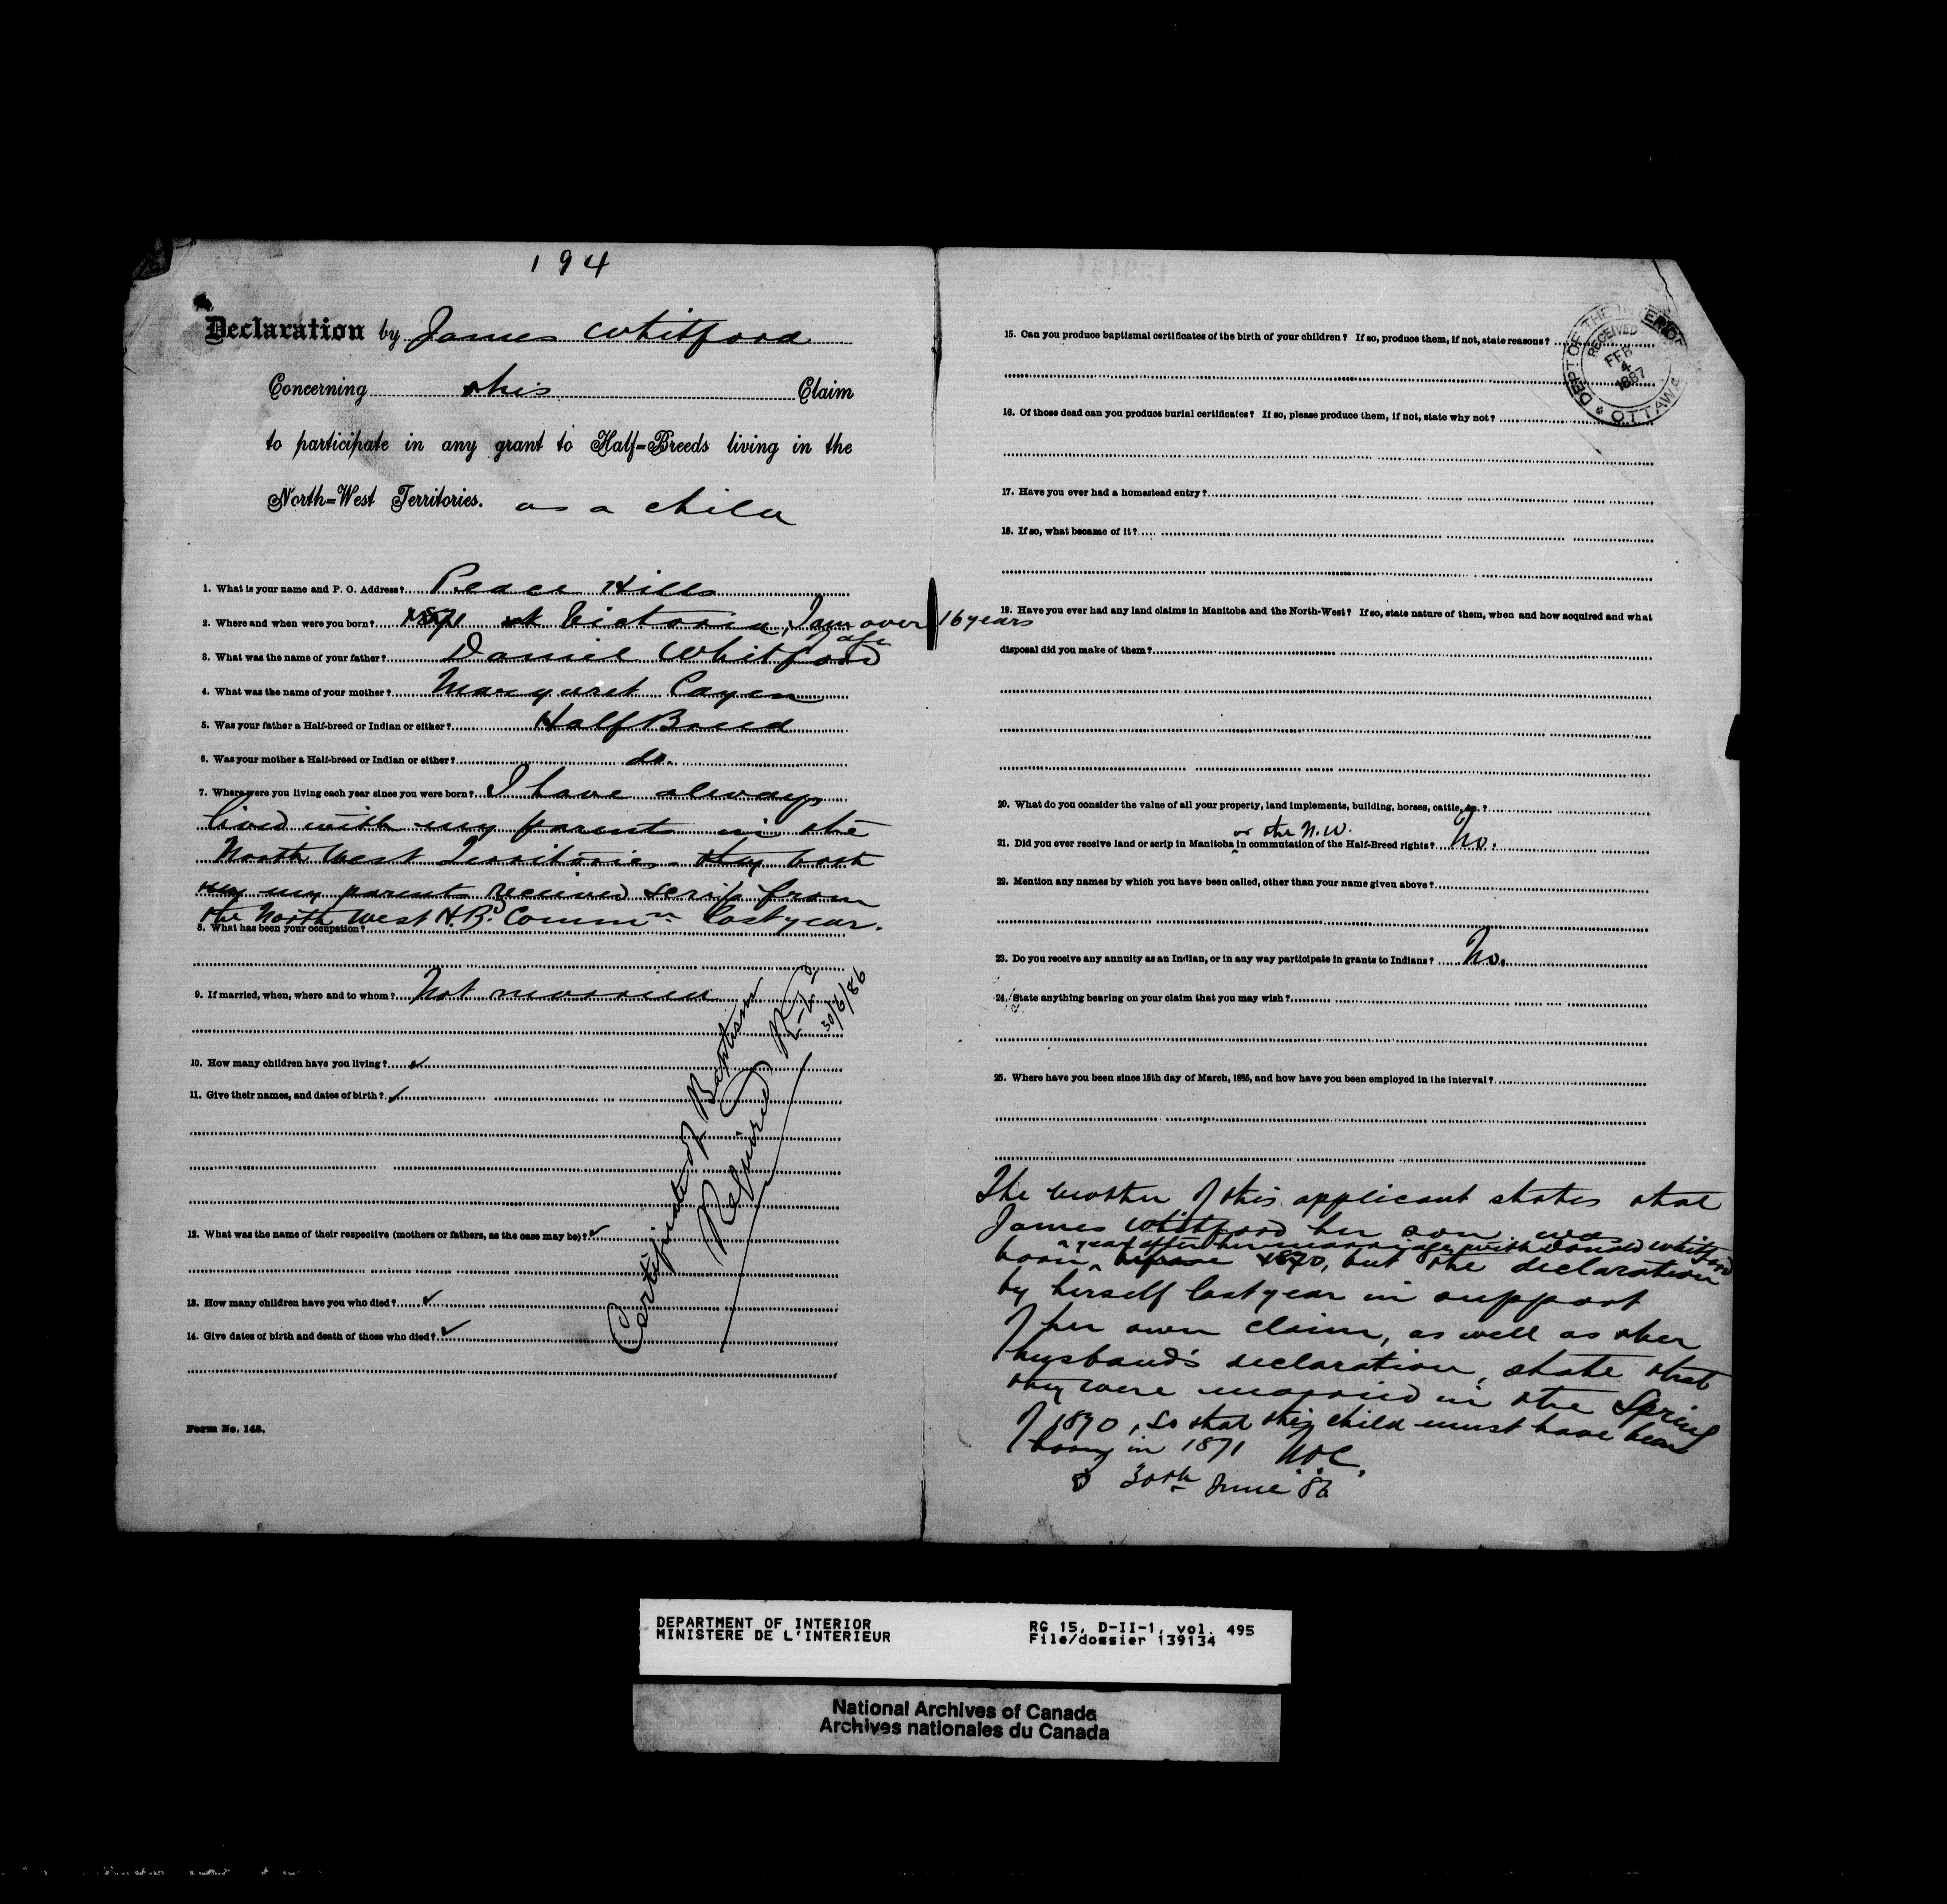 194
Declaration by James Whitford
Concerning this Claim
to participate in any grant to Half=Breeds living in the
North=West Territories. as a child
1. What is your name and P. O. Address? Peace Hills
2. Where and when were you born? 1871 at Victoria, I am over 16 years
of age
3. What was the name of your father? Daniel Whitford
4. What was the name of your mother? Margaret Cayen
5. Was your father a Half-breed or Indian or either? Half Breed
6. Was your mother a Half-breed or Indian or either? do.
7. Where were you living each year since you were born? I have always
lived with my parents in the
North West Territories. they both
my parents received scrip from
the North West H.B. Commn last year.
8. What has been your occupation?
9. If married, when, where and to whom? Not married
10. How many children have you living?
11. Give their names, and dates of birth?
12. What was the name of their respective (mothers or fathers, as the case may be)?
13. How many children have you who died?
14. Give dates of birth and death of those who died?
Certificate of Baptism
Required
30/6/86
Form No. 142.
15. Can you produce baptismal certificates of the birth of your children? If so, produce them, if not, state reasons?
DEPT OF THE INTERIOR
RECEIVED
FEB
4
1887
OTTAWA
16. Of those dead can you produce burial certificates? If so, please produce them, if not, state why not?
17. Have you ever had a homestead entry?
18. If so, what became of it?
19. Have you ever had any land claims in Manitoba and the North-West? If so, state nature of them, when and how acquired and what
disposal did you make of them?
20. What do you consider the value of all your property, land implements, building, horses, cattle, &c.?
or the N.W.
21. Did you ever receive land or scrip in Manitoba in commutation of the Half-Breed rights? No.
22. Mention any names by which you have been called, other than your name given above?
23. Do you receive any annuity as an Indian, or in any way participate in grants to Indians? No.
24. State anything bearing on your claim that you may wish?
25. Where have you been since 15th day of March, 1885, and how have you been employed in the interval?
The mother of this applicant states that
James Whitford her son was
a year after her marriage with Donald Whitford
born before 1870, but the declaration
by herself last year in support
of her own claim, as well as her
husband's declaration, state that
they were married in the Spring
of 1870, so that this child must have been
born in 1871 N.O.C.
30th June 86
DEPARTMENT OF INTERIOR
MINISTERE DE L'INTERIEUR
RG 15, D-II-1, vol. 495
File/dossier 139134
National Archives of Canada
Archives nationales du Canada